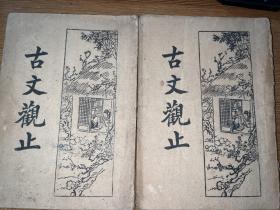 古文觀止
古文觀止